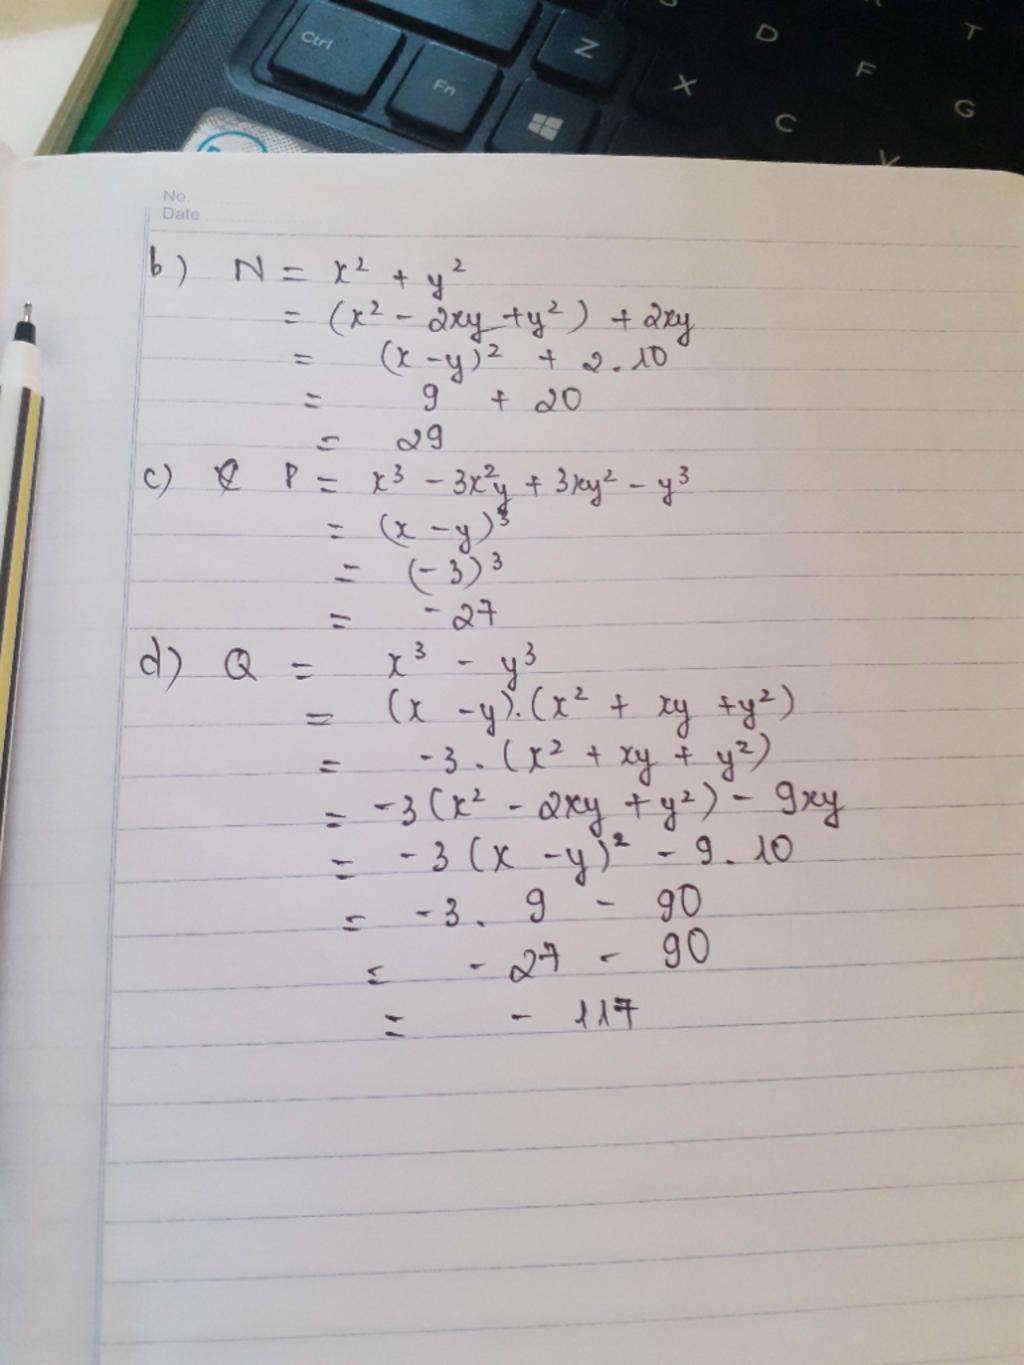 Ctrl
Fn
Z
X
D
F
C
T
G
V
No.
Date
b) N = x² + y²
= (x² - 2xy + y²) + 2xy
= (x - y)² + 2.10
= 9 + 20
= 29
c) P = x³ - 3x²y + 3xy² - y³
= (x - y)³
= (-3)³
= -27
d) Q = x³ - y³
= (x - y).(x² + xy + y²)
= -3.(x² + xy + y²)
= -3(x² - 2xy + y²) - 9xy
= -3(x - y)² - 9.10
= -3.9 - 90
= -27 - 90
= -117